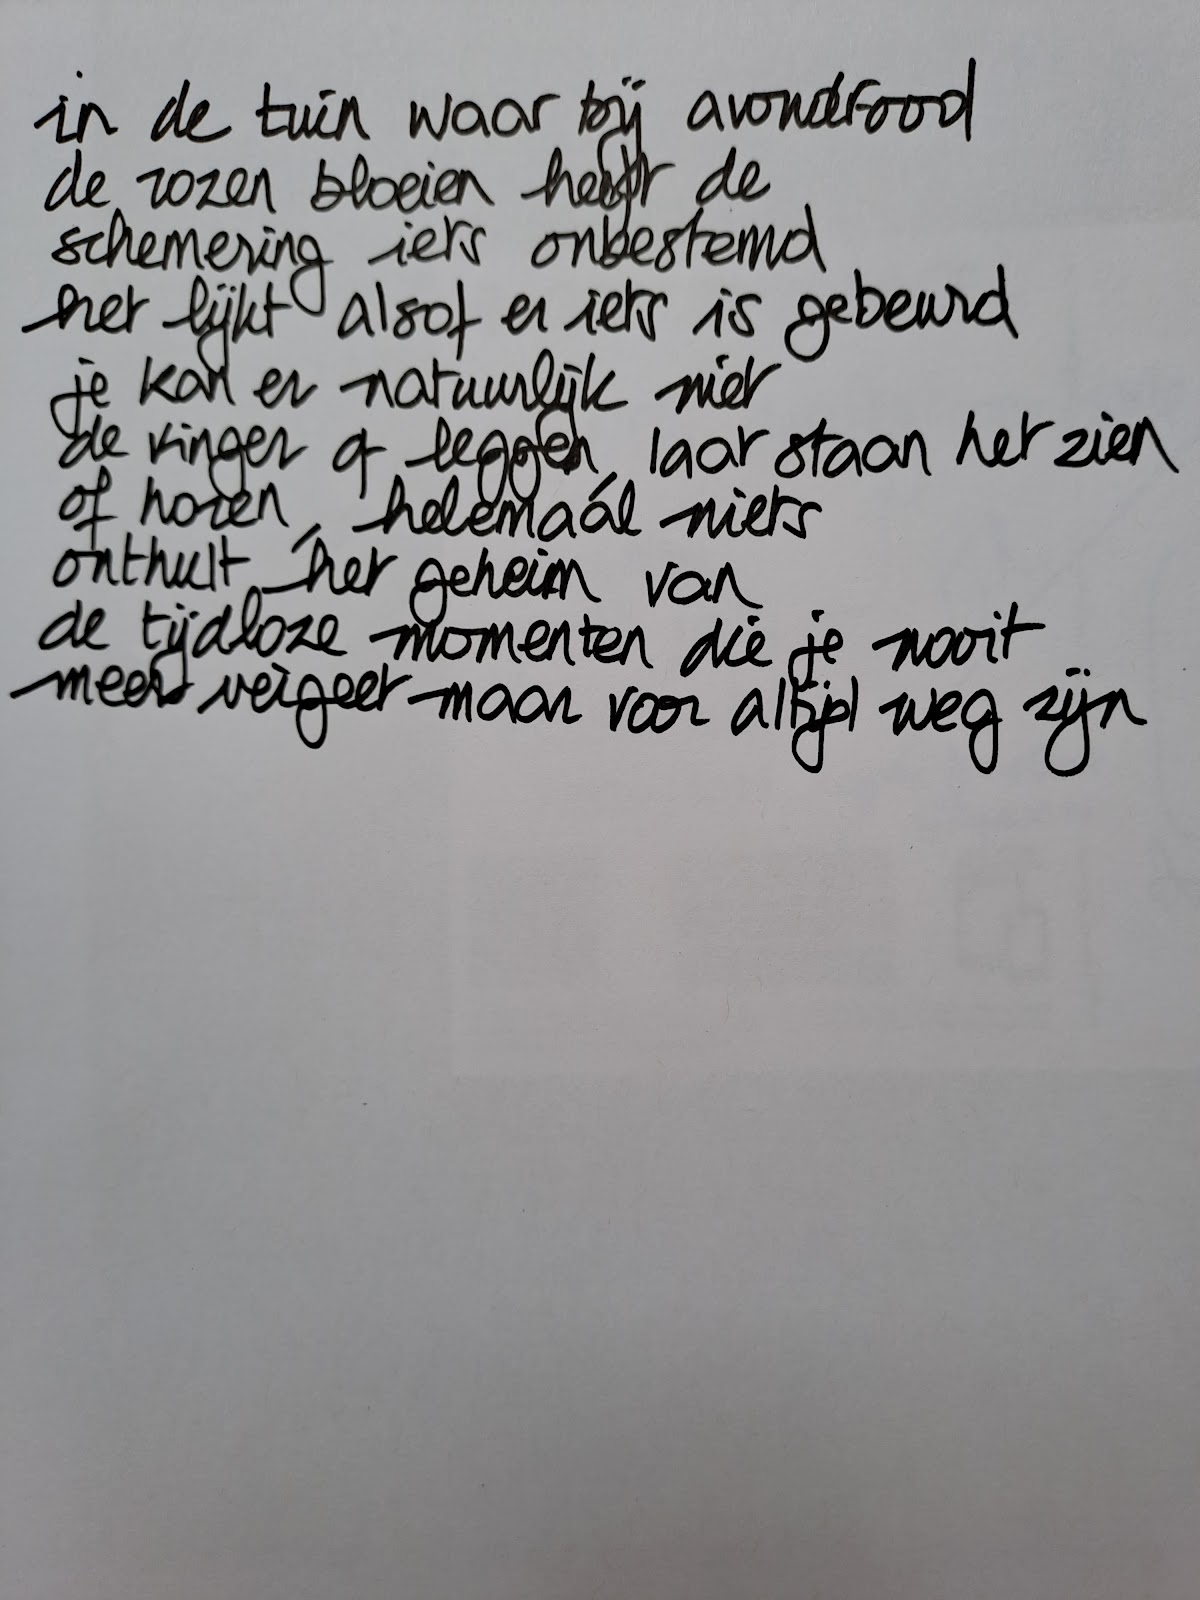 in de tuin waar bij avondrood
de rozen bloeien heeft de
schemering iets onbestemd
het lijkt alsof er iets is gebeurd
je kan er natuurlijk niet
de vinger op leggen, laat staan het zien
of horen, helemáál niets
onthult het geheim van
de tijdloze momenten die je nooit
meer vergeet maar voor altijd weg zijn